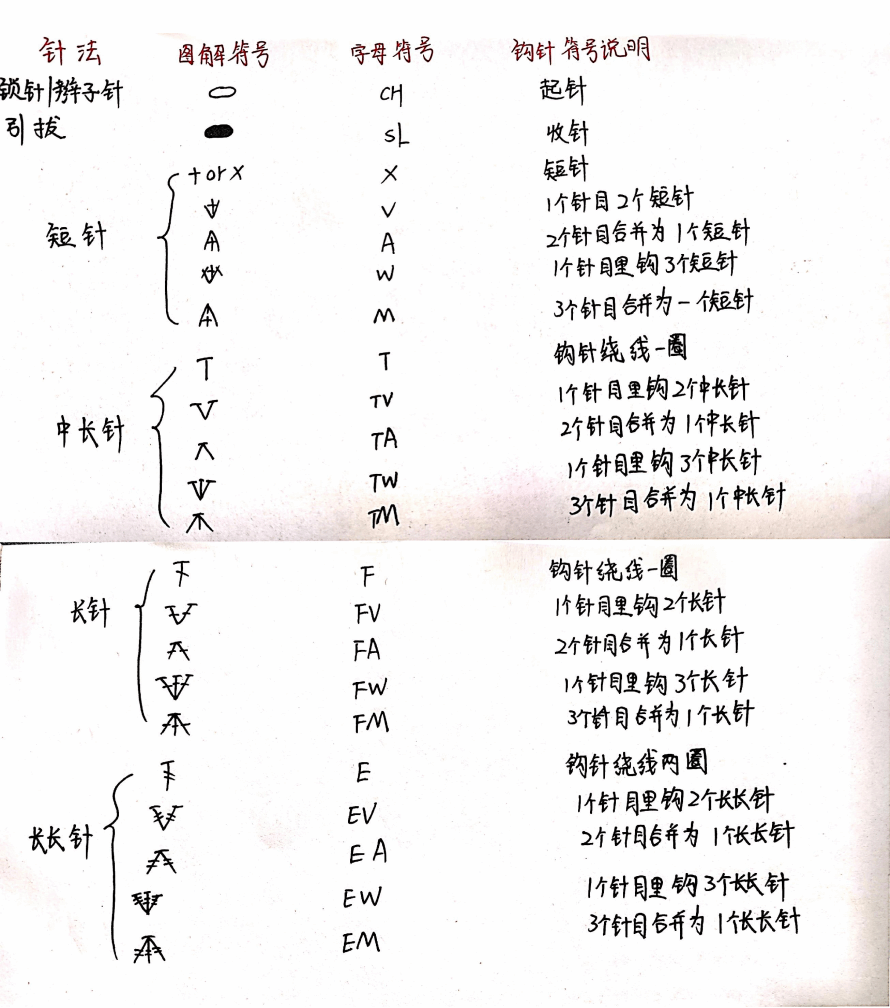 针法 图解符号 字母符号 钩针符号说明
锁针|辫子针 CH 起针
引拔 SL 收针
+orX X 短针
V 1个针目2个短针
短针 A 2个针目合并为1个短针
W 1个针目里钩3个短针
M 3个针目合并为一个短针
T T 钩针绕线一圈
TV 1个针目里钩2个中长针
中长针 TA 2个针目合并为1个中长针
TW 1个针目里钩3个中长针
TM 3个针目合并为1个中长针
F 钩针绕线一圈
长针 FV 1个针目里钩2个长针
FA 2个针目合并为1个长针
FW 1个针目里钩3个长针
FM 3个针目合并为1个长针
E 钩针绕线两圈
EV 1个针目里钩2个长长针
长长针 EA 2个针目合并为1个长长针
EW 1个针目里钩3个长长针
EM 3个针目合并为1个长长针